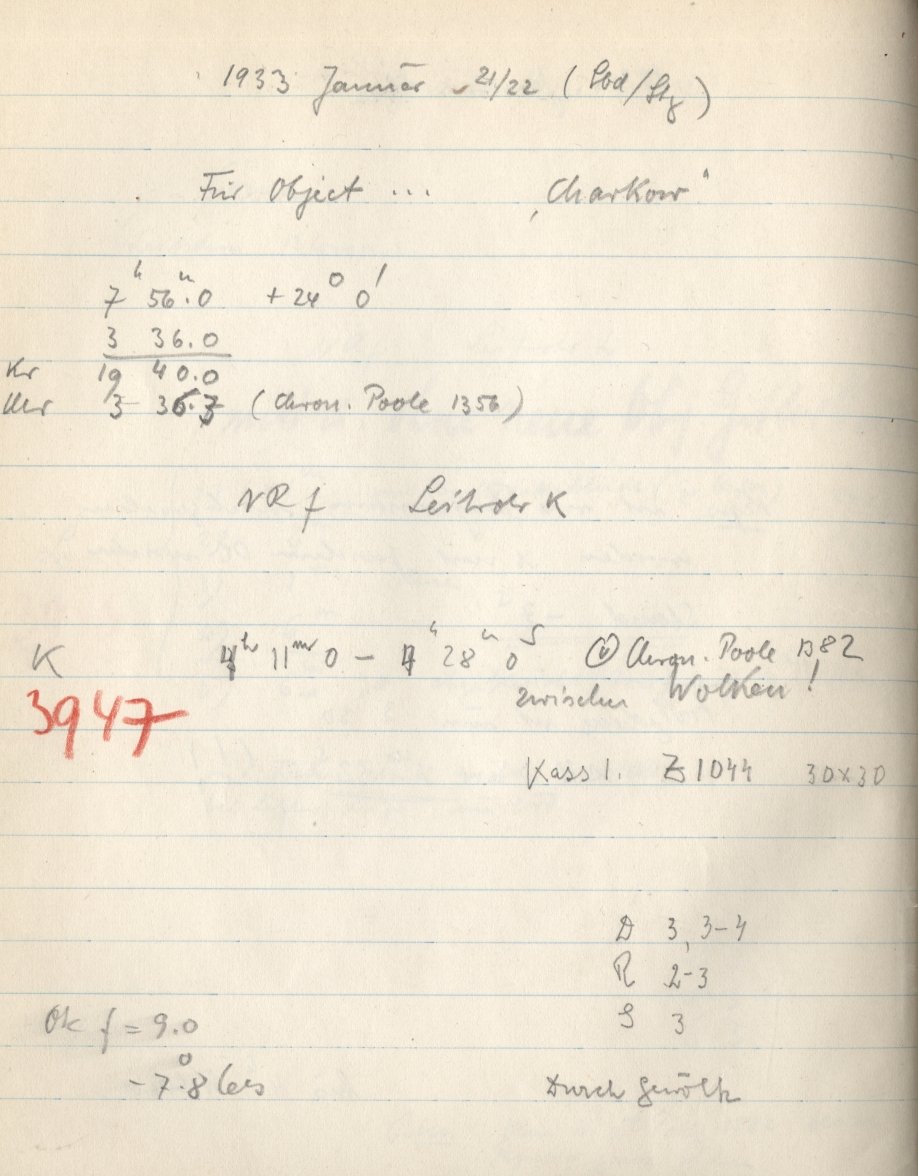 1933 Januar 21/22 (Sbd/Stg)
Für Object ... „Charkow“
7ʰ 56ᵐ.0 +24° 0'
3 36.0
Kr 19 40.0
Uhr 3 36.7 (Chron. Poole 1356)
NR f Leitrohr K
K 4ʰ 11ᵐ 0 – 4ʰ 28ᵐ 0ˢ Chron. Poole 1382
zwischen Wolken!
3947
Kass 1. Z 1044 30x30
D 3, 3-4
R 2-3
S 3
Ok f = 9.0
-7°.8 Cels
Durch Gewölk